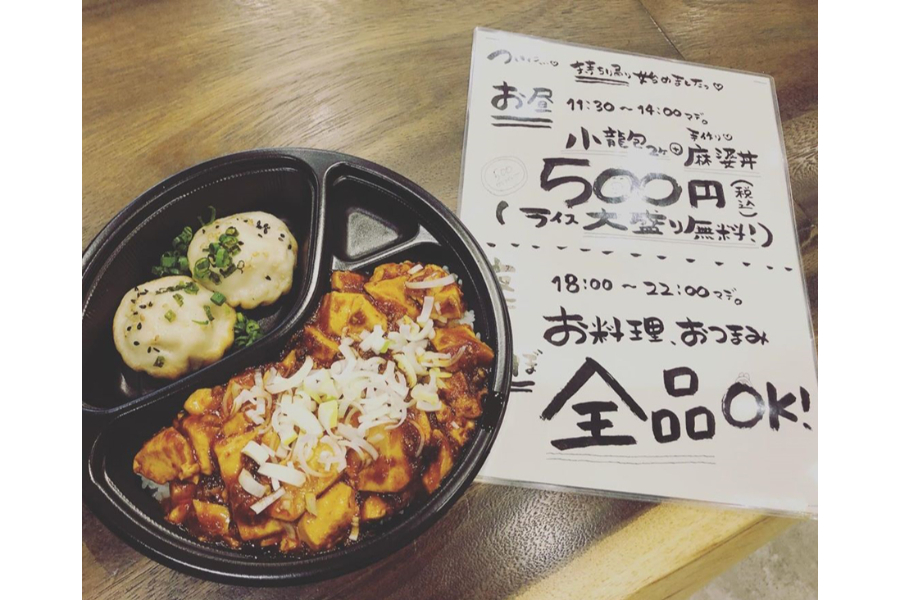 ついに…♡ 持ち帰り始めましたっ♡
お昼 11:30〜14:00マデ。
小龍包2ケ+手作り♡麻婆丼
500円(税込)
(ライス大盛り無料!)
18:00〜22:00マデ。
お料理、おつまみ
全品OK!